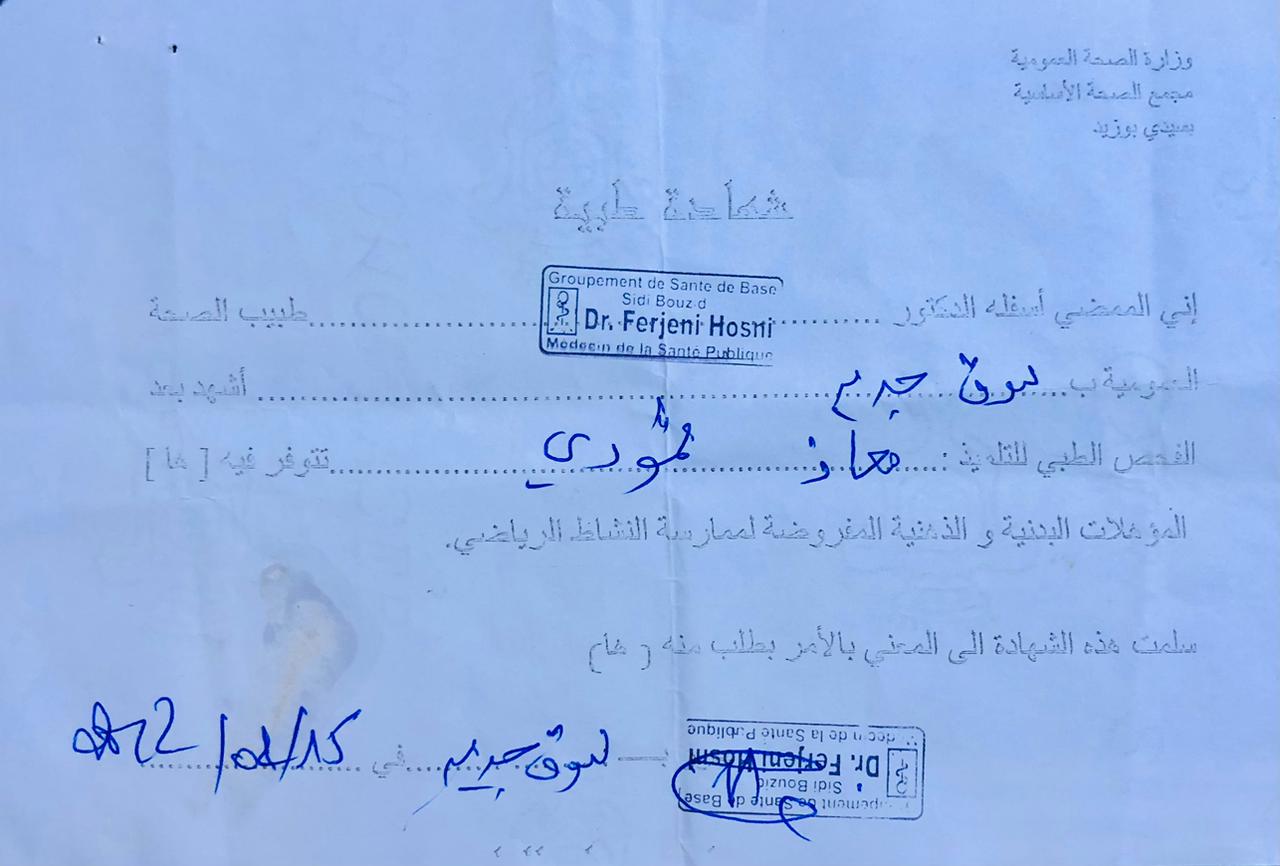 وزارة الصحة العمومية
مجمع الصحة الأساسية
بسيدي بوزيد
شهادة طبية
Groupement de Sante de Base
Sidi Bouzid
Dr. Ferjeni Hosni
Médecin de la Santé Publique
إني الممضي أسفله الدكتور ............ طبيب الصحة
العمومية ب ... سوق جديد ............ أشهد بعد
الفحص الطبي للتلميذ : معاذ ............ تتوفر فيه [ ها ]
المؤهلات البدنية و الذهنية المفروضة لممارسة النشاط الرياضي.
سلمت هذه الشهادة الى المعني بالأمر بطلب منه [ ها ]
بـ سوق جديد في 15/02/
Groupement de Sante de Base
Sidi Bouzid
Dr. Ferjeni Hosni
Médecin de la Santé Publique